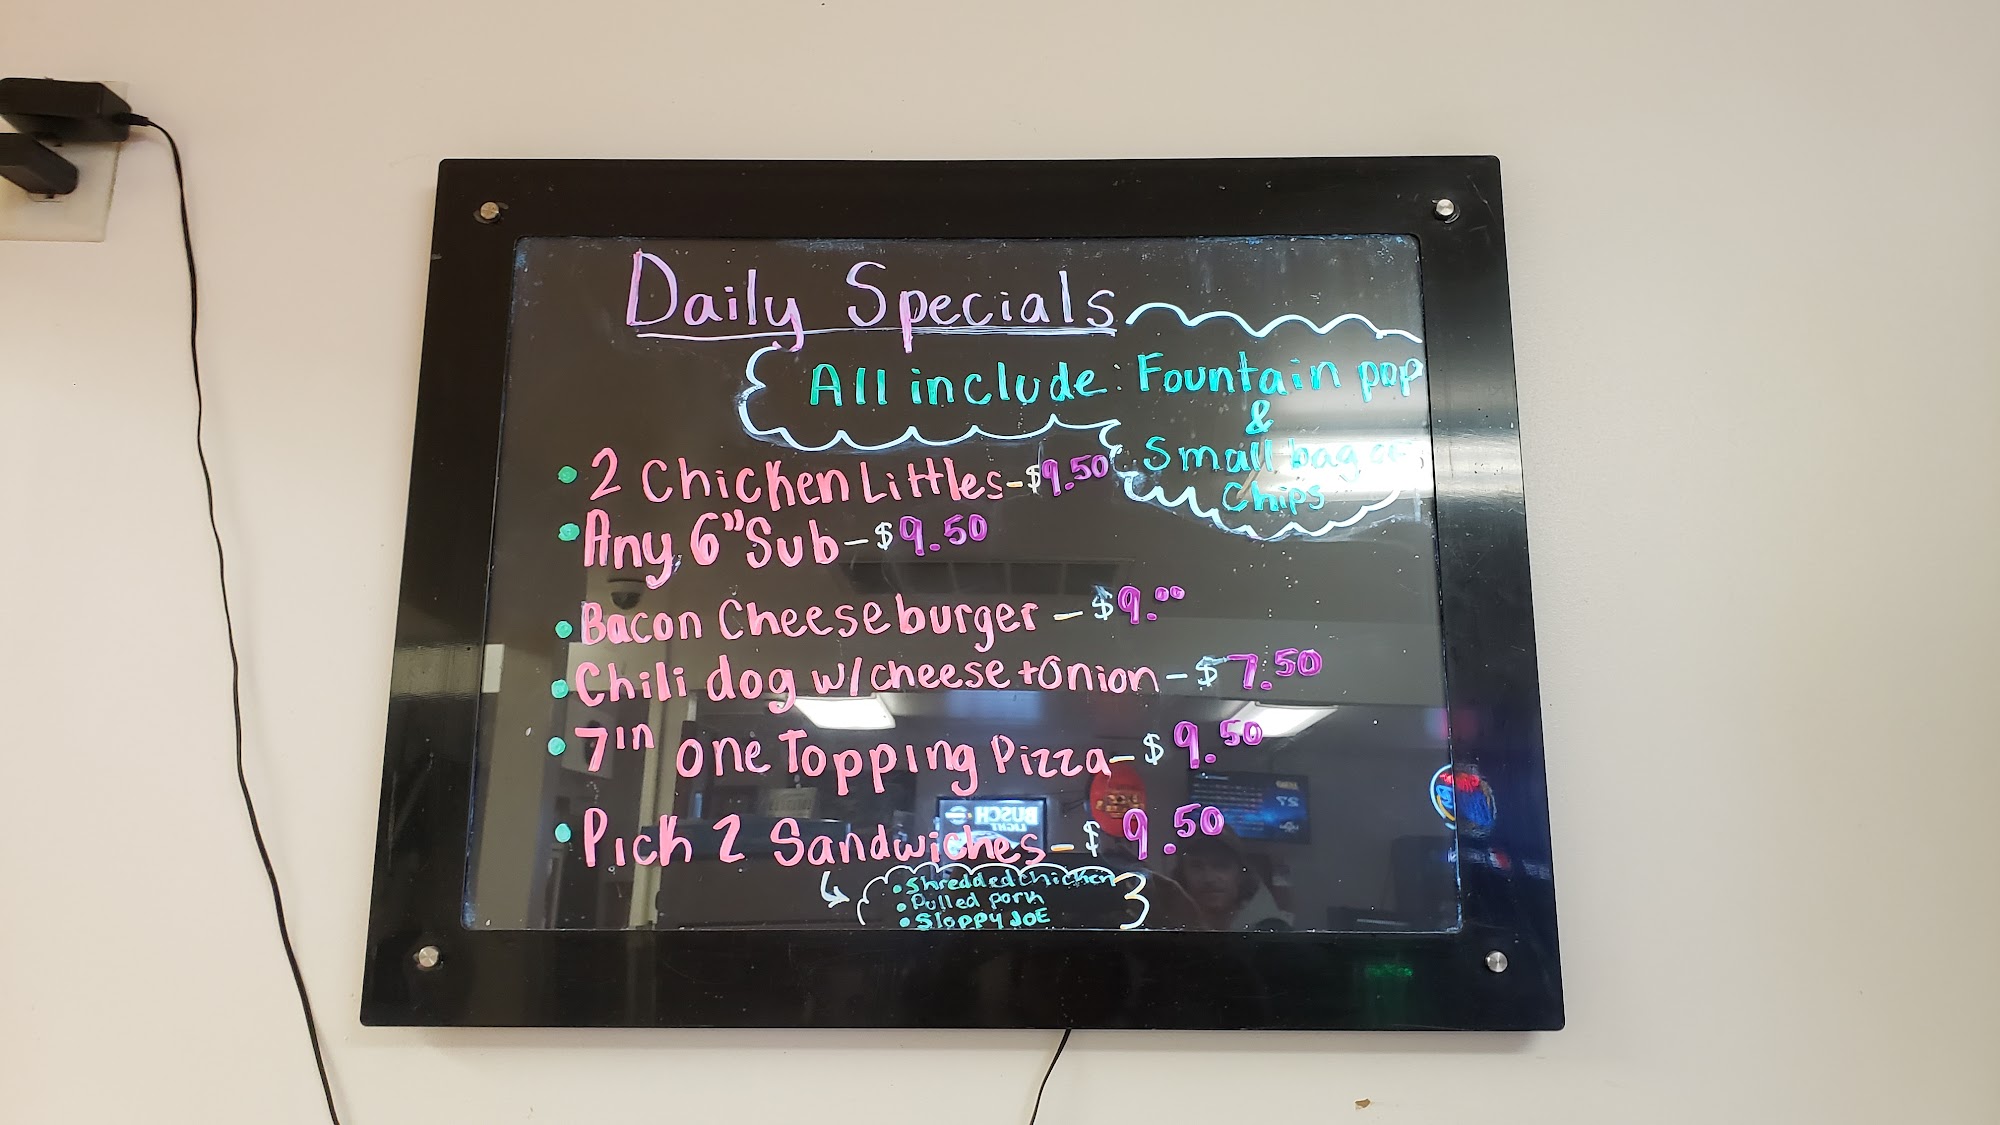 Daily Specials
All include: Fountain pop
&
Small bag of
Chips
• 2 Chicken Littles - $9.50
• Any 6" Sub - $9.50
• Bacon Cheeseburger - $9.00
• Chili dog w/cheese + Onion - $7.50
• 7in One Topping Pizza - $9.50
• Pick 2 Sandwiches - $9.50
• Shredded Chicken
• Pulled pork
• Sloppy JOE
BUSCH
LIGHT
27